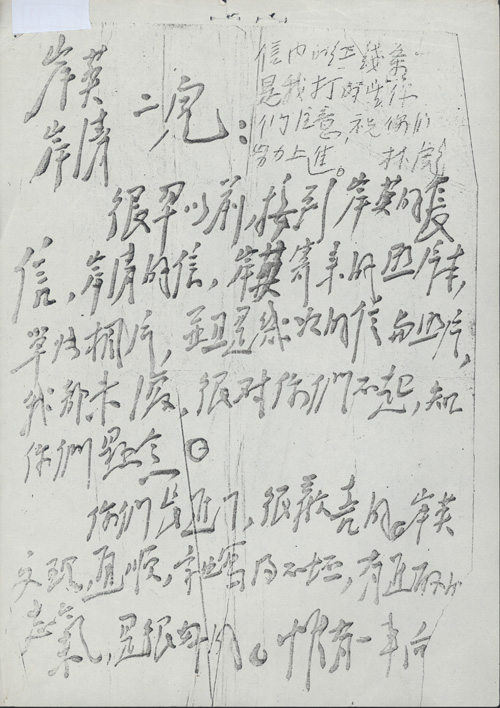 岸英
岸清 二児:
信内的红线条
是我打的望你
们注意,祝你们
努力上进。 林彪
很早以前,接到岸英的長
信,岸清的信,岸英寄来的照片本,
單张相片,並且是幾次的信与照片,
我都未復,很对你們不起,知
你們懸念。
你們長進了,很歡喜的。岸英
文理通順,字也寫得不坏,有進取的
志氣,是很好的。惟有一事向